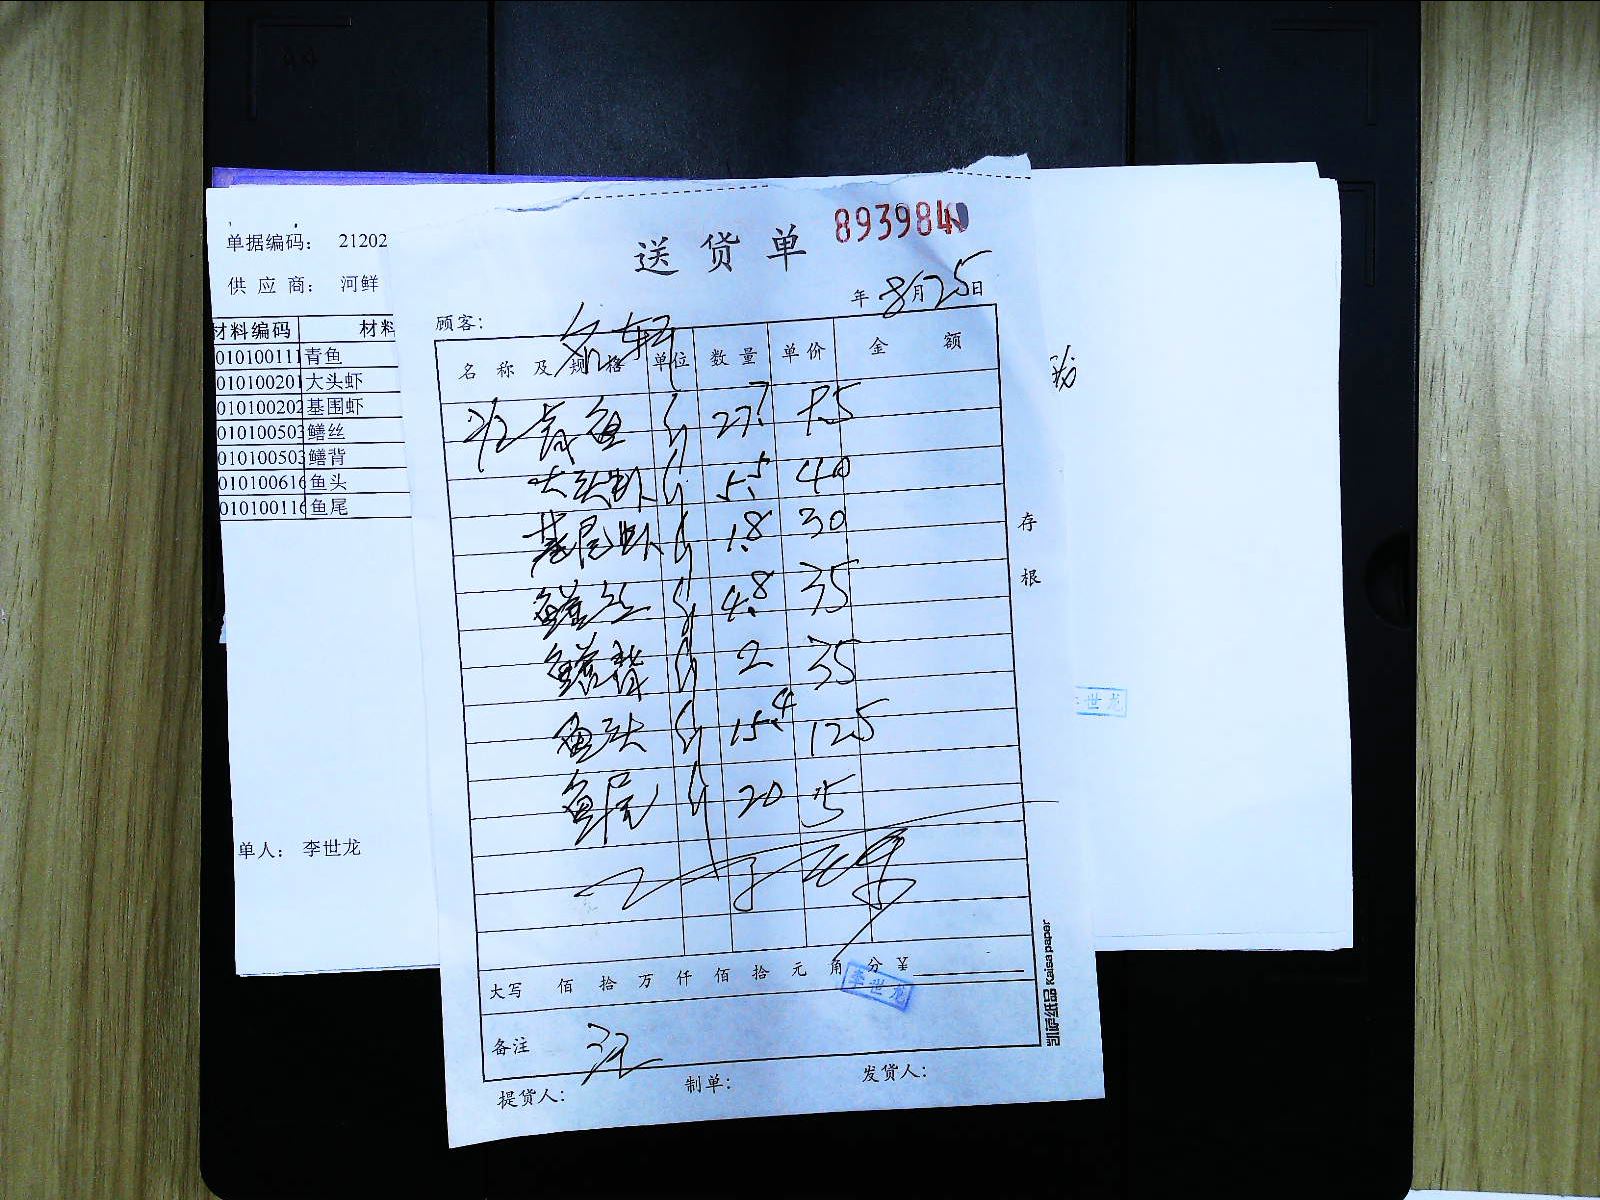 单据编码： 21202
供 应 商： 河鲜
材料编码 材料
010100111 青鱼
010100201 大头虾
010100202 基围虾
010100503 鳝丝
010100503 鳝背
010100616 鱼头
010100116 鱼尾
单人： 李世龙
送货单
893984
年 8月25日
顾客：
名称及规格 单位 数量 单价 金额
青鱼 斤 27. 8.5
大头虾 斤 5.5 40
基围虾 斤 1.8 30
鳝丝 斤 4.8 35
鳝背 斤 2 35
鱼头 斤 15.4 12.5
鱼尾 斤 20 15
大写 佰 拾 万 仟 佰 拾 元 角 分 ¥
李世龙
备注
提货人： 制单： 发货人：
存根
凯萨纸品 Kaisa paper
世龙